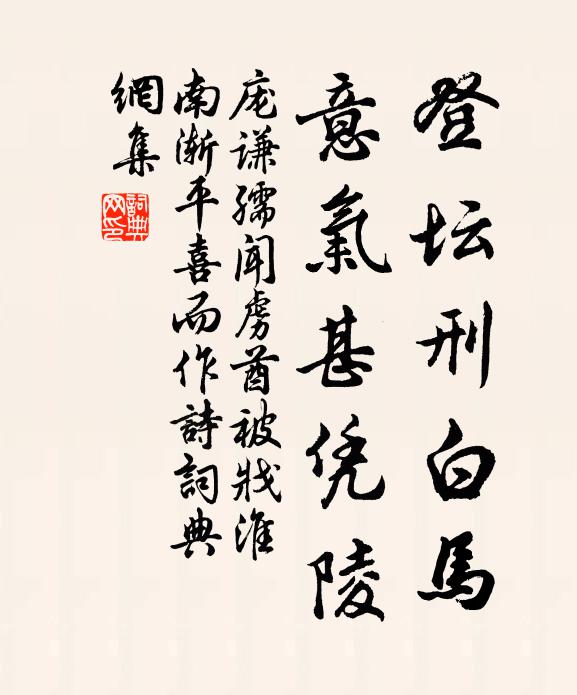 登坛刑白馬
意氣甚凭陵
庞谦孺闻虏酋被戕淮
南渐平喜而作詩詞典
網集
詞典网印